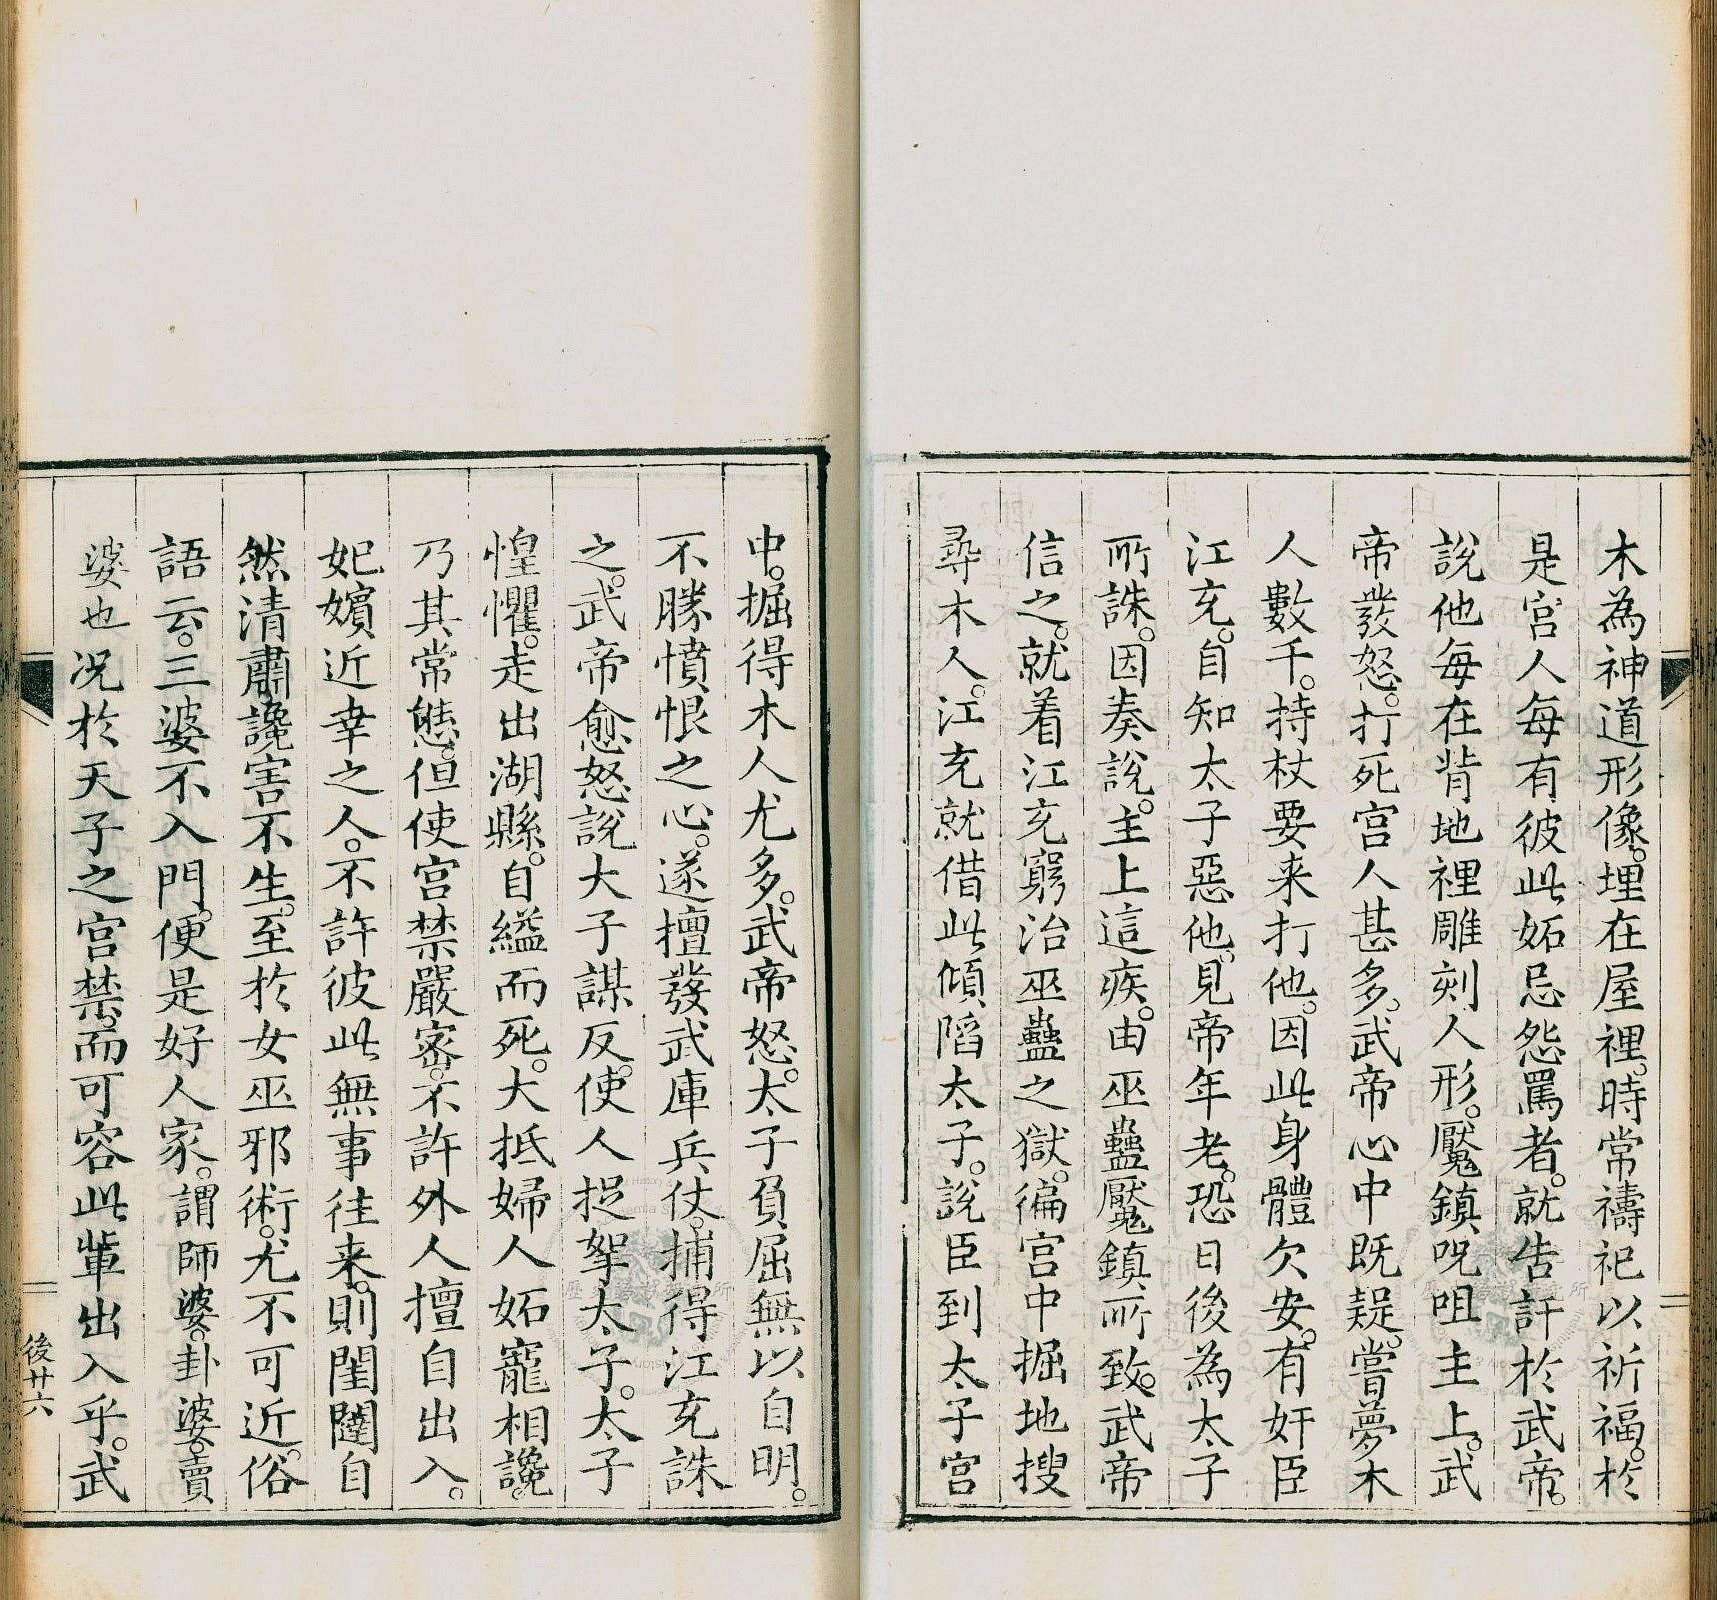 木為神道形像。埋在屋裡。時常禱祀以祈福。於
是宮人每有彼此妬忌怨罵者。就告訐於武帝。
說他每在背地裡雕刻人形。魘鎮呪咀主上。武
帝發怒。打死宮人甚多。武帝心中既疑。嘗夢木
人數千。持杖要来打他。因此身體欠安。有奸臣
江充。自知太子惡他。見帝年老。恐日後為太子
所誅。因奏說。主上這疾。由巫蠱魘鎮所致。武帝
信之。就着江充窮治巫蠱之獄。徧宮中掘地搜
尋木人。江充就借此傾陷太子。說臣到太子宮
中。掘得木人尤多。武帝怒。太子負屈無以自明。
不勝憤恨之心。遂擅發武庫兵仗。捕得江充誅
之。武帝愈怒說太子謀反。使人捉拏太子。太子
惶懼。走出湖縣。自縊而死。大抵婦人妬寵相讒。
乃其常態。但使宮禁嚴密。不許外人擅自出入。
妃嬪近幸之人。不許彼此無事往来。則閨闥自
然清肅。讒害不生。至於女巫邪術。尤不可近。俗
語云。三婆不入門。便是好人家。謂師婆。卦婆。賣
婆也況於天子之宮禁。而可容此輩出入乎。武
後廿六